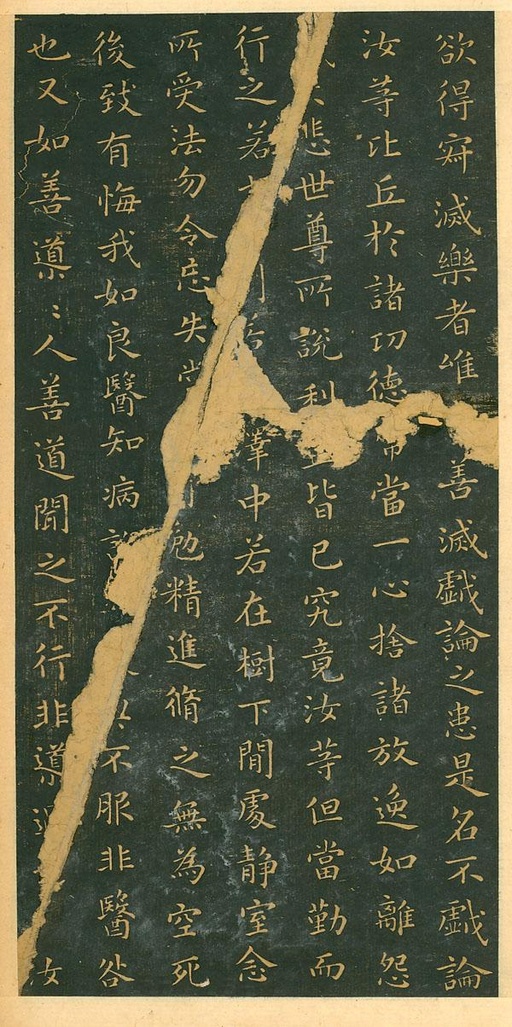 欲得寂滅樂者唯善滅戲論之患是名不戲論
汝等比丘於諸功德常當一心捨諸放逸如離怨
悲世尊所說利皆已究竟汝等但當勤而
行之若中若在樹下閒處静室念
所受法勿令忘失勉精進脩之無為空死
後致有悔我如良醫知病不服非醫咎
也又如善導導人善道聞之不行非導汝